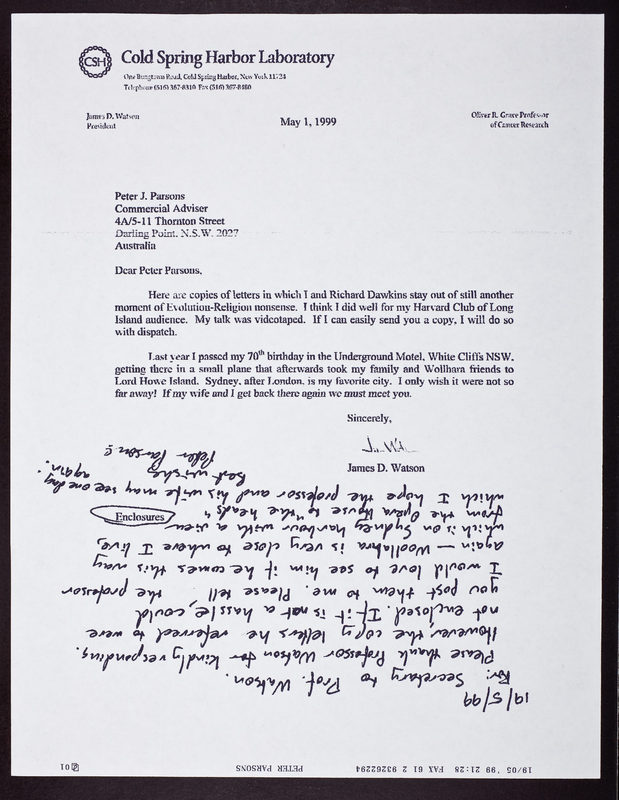 CSH
Cold Spring Harbor Laboratory
One Bungtown Road, Cold Spring Harbor, New York 11724
Telephone (516) 367-8310 Fax (516) 367-8480
James D. Watson
President
May 1, 1999
Oliver R. Grace Professor
of Cancer Research
Peter J. Parsons
Commercial Adviser
4A/5-11 Thornton Street
Darling Point, N.S.W. 2027
Australia
Dear Peter Parsons,
Here are copies of letters in which I and Richard Dawkins stay out of still another
moment of Evolution-Religion nonsense. I think I did well for my Harvard Club of Long
Island audience. My talk was videotaped. If I can easily send you a copy, I will do so
with dispatch.
Last year I passed my 70th birthday in the Underground Motel, White Cliffs NSW,
getting there in a small plane that afterwards took my family and Wollhara friends to
Lord Howe Island. Sydney, after London, is my favorite city. I only wish it were not so
far away! If my wife and I get back there again we must meet you.
Sincerely,
James D. Watson
Enclosures
19/5/99
For: Secretary to Prof. Watson.
Please thank Professor Watson for kindly responding.
However, the copy letters he referred to were
not enclosed. If it is not a hassle, could
you post them to me. Please tell the professor
I would love to see him if he comes this way
again — Woollahra is very close to where I live,
which is on Sydney harbour with a view
from the Opera House to "the heads"
which I hope the professor and his wife may see one day
again.
Best wishes
Peter Parsons
19/05 '99 21:28 FAX 61 2 93262294
PETER PARSONS
01